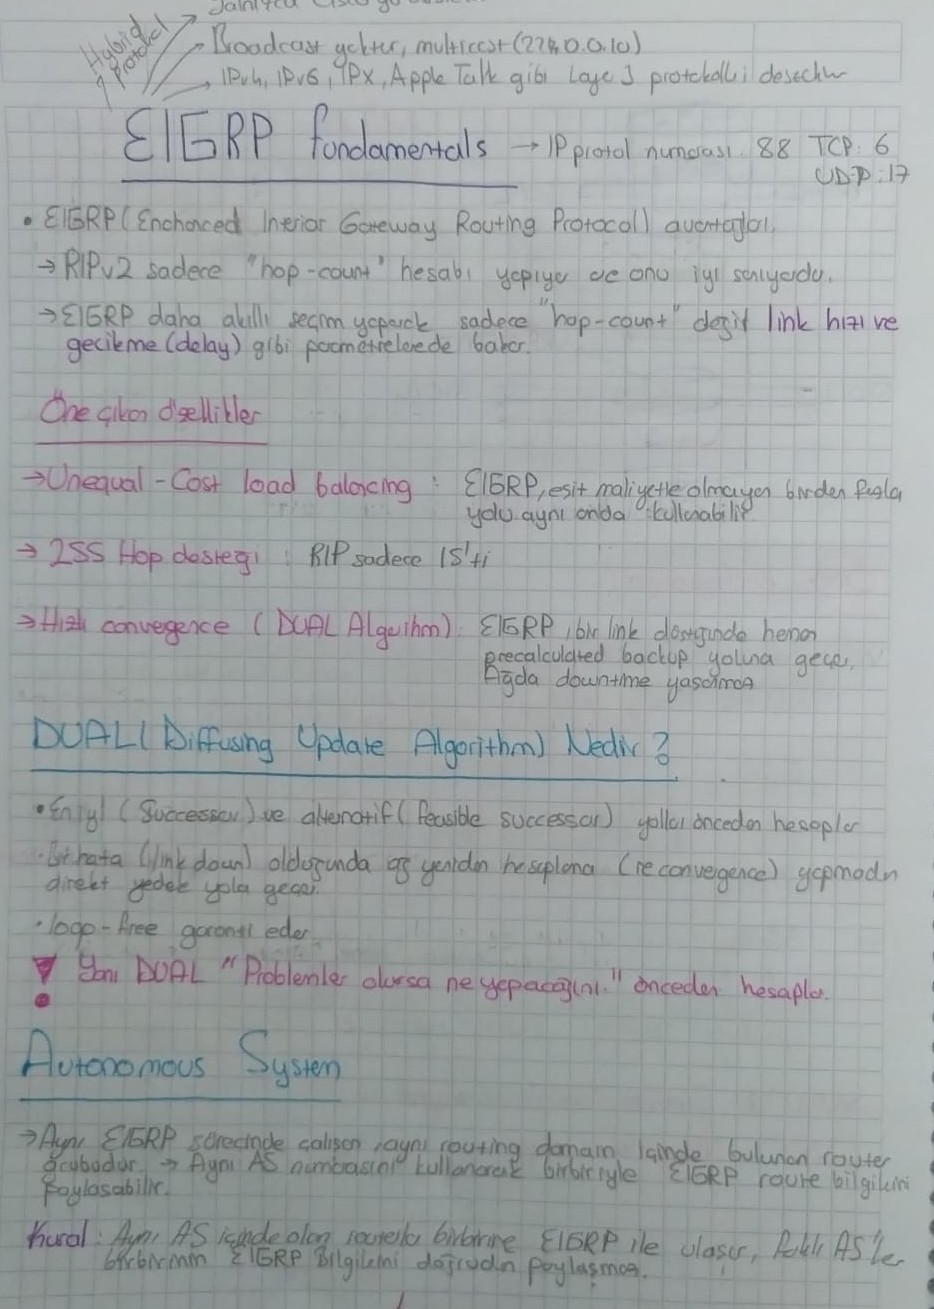 Hybrid protokol
Broadcast yoktur, multicast (224.0.0.10)
IPv4, IPv6, IPX, Apple Talk gibi Layer 3 protokolleri destekler
EIGRP fundamentals → IP protol numarası: 88 TCP: 6
UDP: 17
• EIGRP (Enchanced Inerior Gateway Routing Protocol) avantajları
→ RIPv2 sadece "hop-count" hesabı yapıyor ve onu iyi sanıyordu.
→ EIGRP daha akıllı seçim yaparak sadece "hop-count" değil link hızı ve
gecikme (delay) gibi parametrelerede bakar.
Öne çıkan özellikler
→ Unequal-Cost load balancing : EIGRP, eşit maliyetle olmayan birden fazla
yolu aynı anda kullanabilir
→ 255 Hop desteği : RIP sadece 15'ti
→ Hızlı convergence (DUAL Algorithm): EIGRP, bir link düştüğünde hemen
precalculated backup yoluna geçer,
Ağda downtime yaşanmaz
DUAL (Diffusing Update Algorithm) Nedir?
• En iyi (Successor) ve alternatif (feasible successor) yolları önceden hesaplar
• Bir hata (link down) olduğunda ağ yeniden hesaplama (reconvergence) yapmadan
direkt yedek yola geçer.
• loop-free garanti eder
! Yani DUAL "Problemler olursa ne yapacağını." önceden hesaplar.
Autonomous System
→ Aynı EIGRP sürecinde çalışan, aynı routing domain içinde bulunan router
grubudur → Aynı AS numbasını kullanarak birbiriyle EIGRP route bilgilerini
Paylaşabilir.
Kural: Aynı AS içinde olan routerlar birbirine EIGRP ile ulaşır, farklı AS'ler
birbirinin EIGRP Bilgilerini doğrudan paylaşmaz.